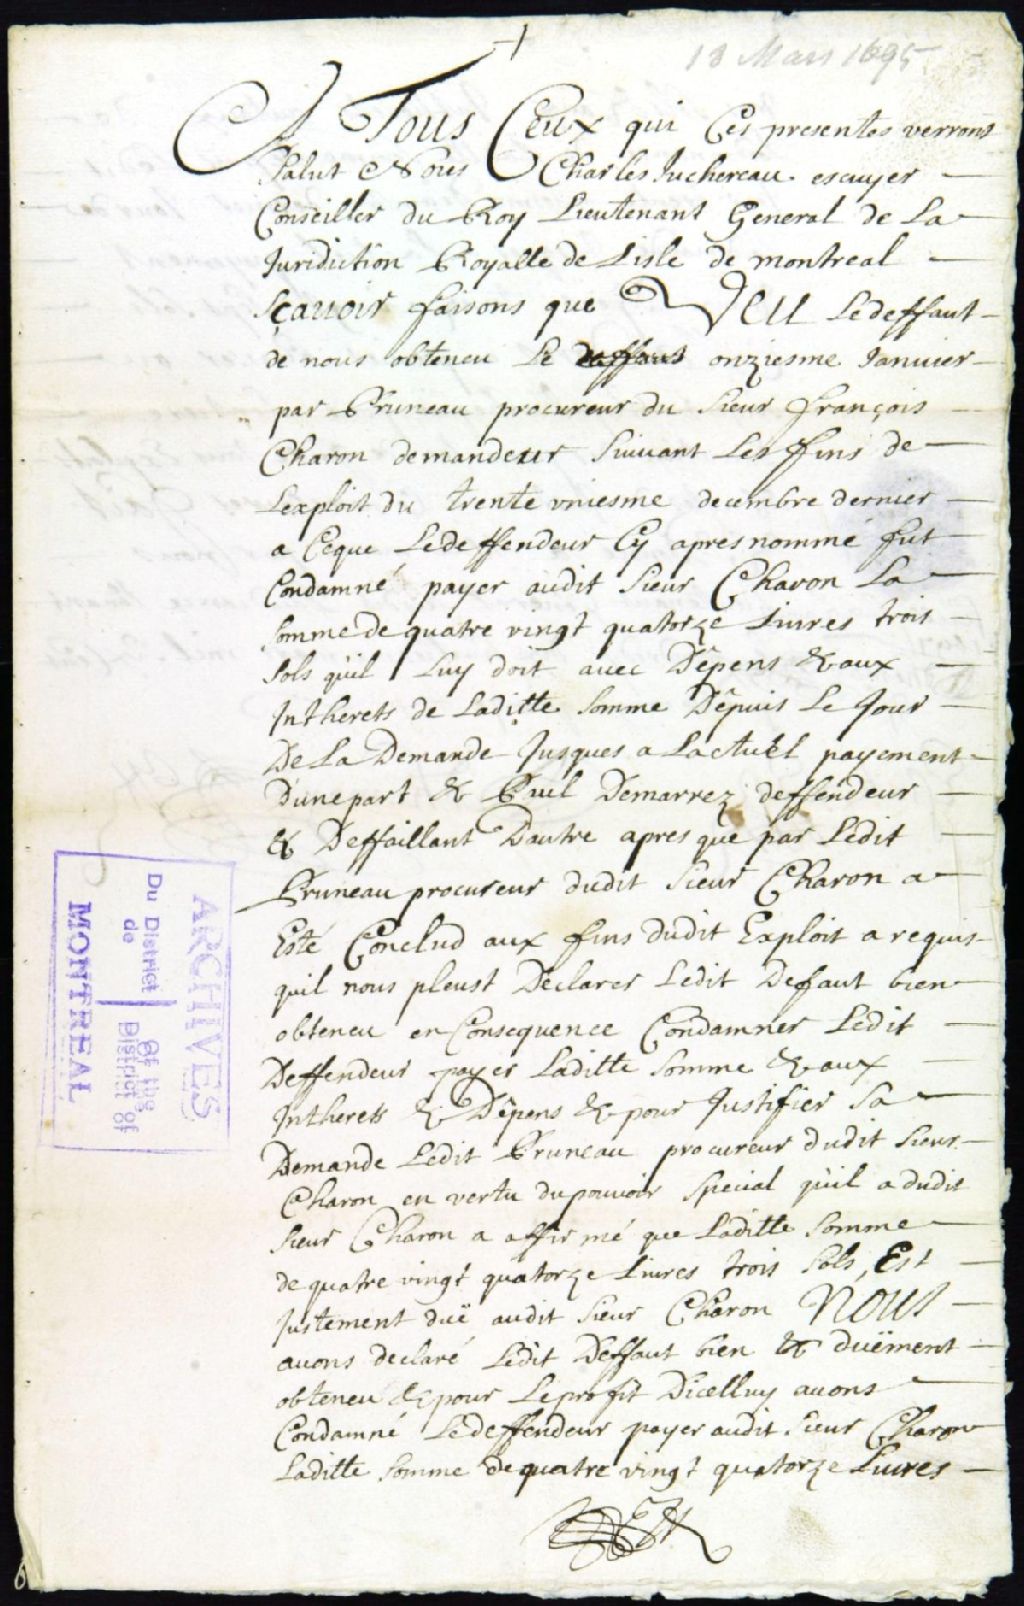 18 Mars 1695
A Tous Ceux qui Ces presentes verront
Salut Nous Charles Juchereau escuyer
Conseiller du Roy Lieutenant General de La
Juridiction Royalle de Lisle de montreal
Sçauoir faisons que Veu Ledeffaut
de nous obteneu le deffaut onziesme Januier
par Pruneau procureur du Sieur françois
Charon demandeur Suiuant Les fins de
Lexploit du trente vniesme decembre dernier
a Ceque Ledeffendeur Cy apres nommé fut
Condamné payer audit Sieur Charon La
Somme de quatre vingt quatorze Liures trois
Sols qu'il Luy doit auec Dépens & aux
Intherets de Laditte Somme Dépuis Le Jour
De La Demande Jusques a Lactuel payement
D'une part & Paul Demarrez deffendeur
& Deffaillant Dautre apres que par Ledit
Pruneau procureur dudit Sieur Charon a
Esté Conclud aux fins dudit Exploit a requis
quil nous pleust Declarer Ledit Deffaut bien
obteneu en Consequence Condamner Ledit
Deffendeur payer Laditte Somme & aux
Intherets & Dépens & pour Justifier Sa
Demande Ledit Pruneau procureur dudit Sieur
Charon en vertu du pouuoir Special qu'il a dudit
Sieur Charon a affirmé que Laditte Somme
de quatre vingt quatorze Liures trois Sols, Est
Justement duë audit Sieur Charon Nous
auons declaré Ledit Deffaut bien & duëment
obteneu & pour Le profit Dicelluy auons
Condamné Ledeffendeur payer audit Sieur Charon
Laditte Somme de quatre vingt quatorze Liures
ARCHIVES
Du District Of the
de District of
MONTREAL
6